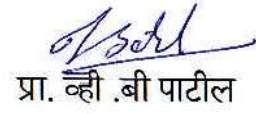 प्रा. व्ही .बी पाटील